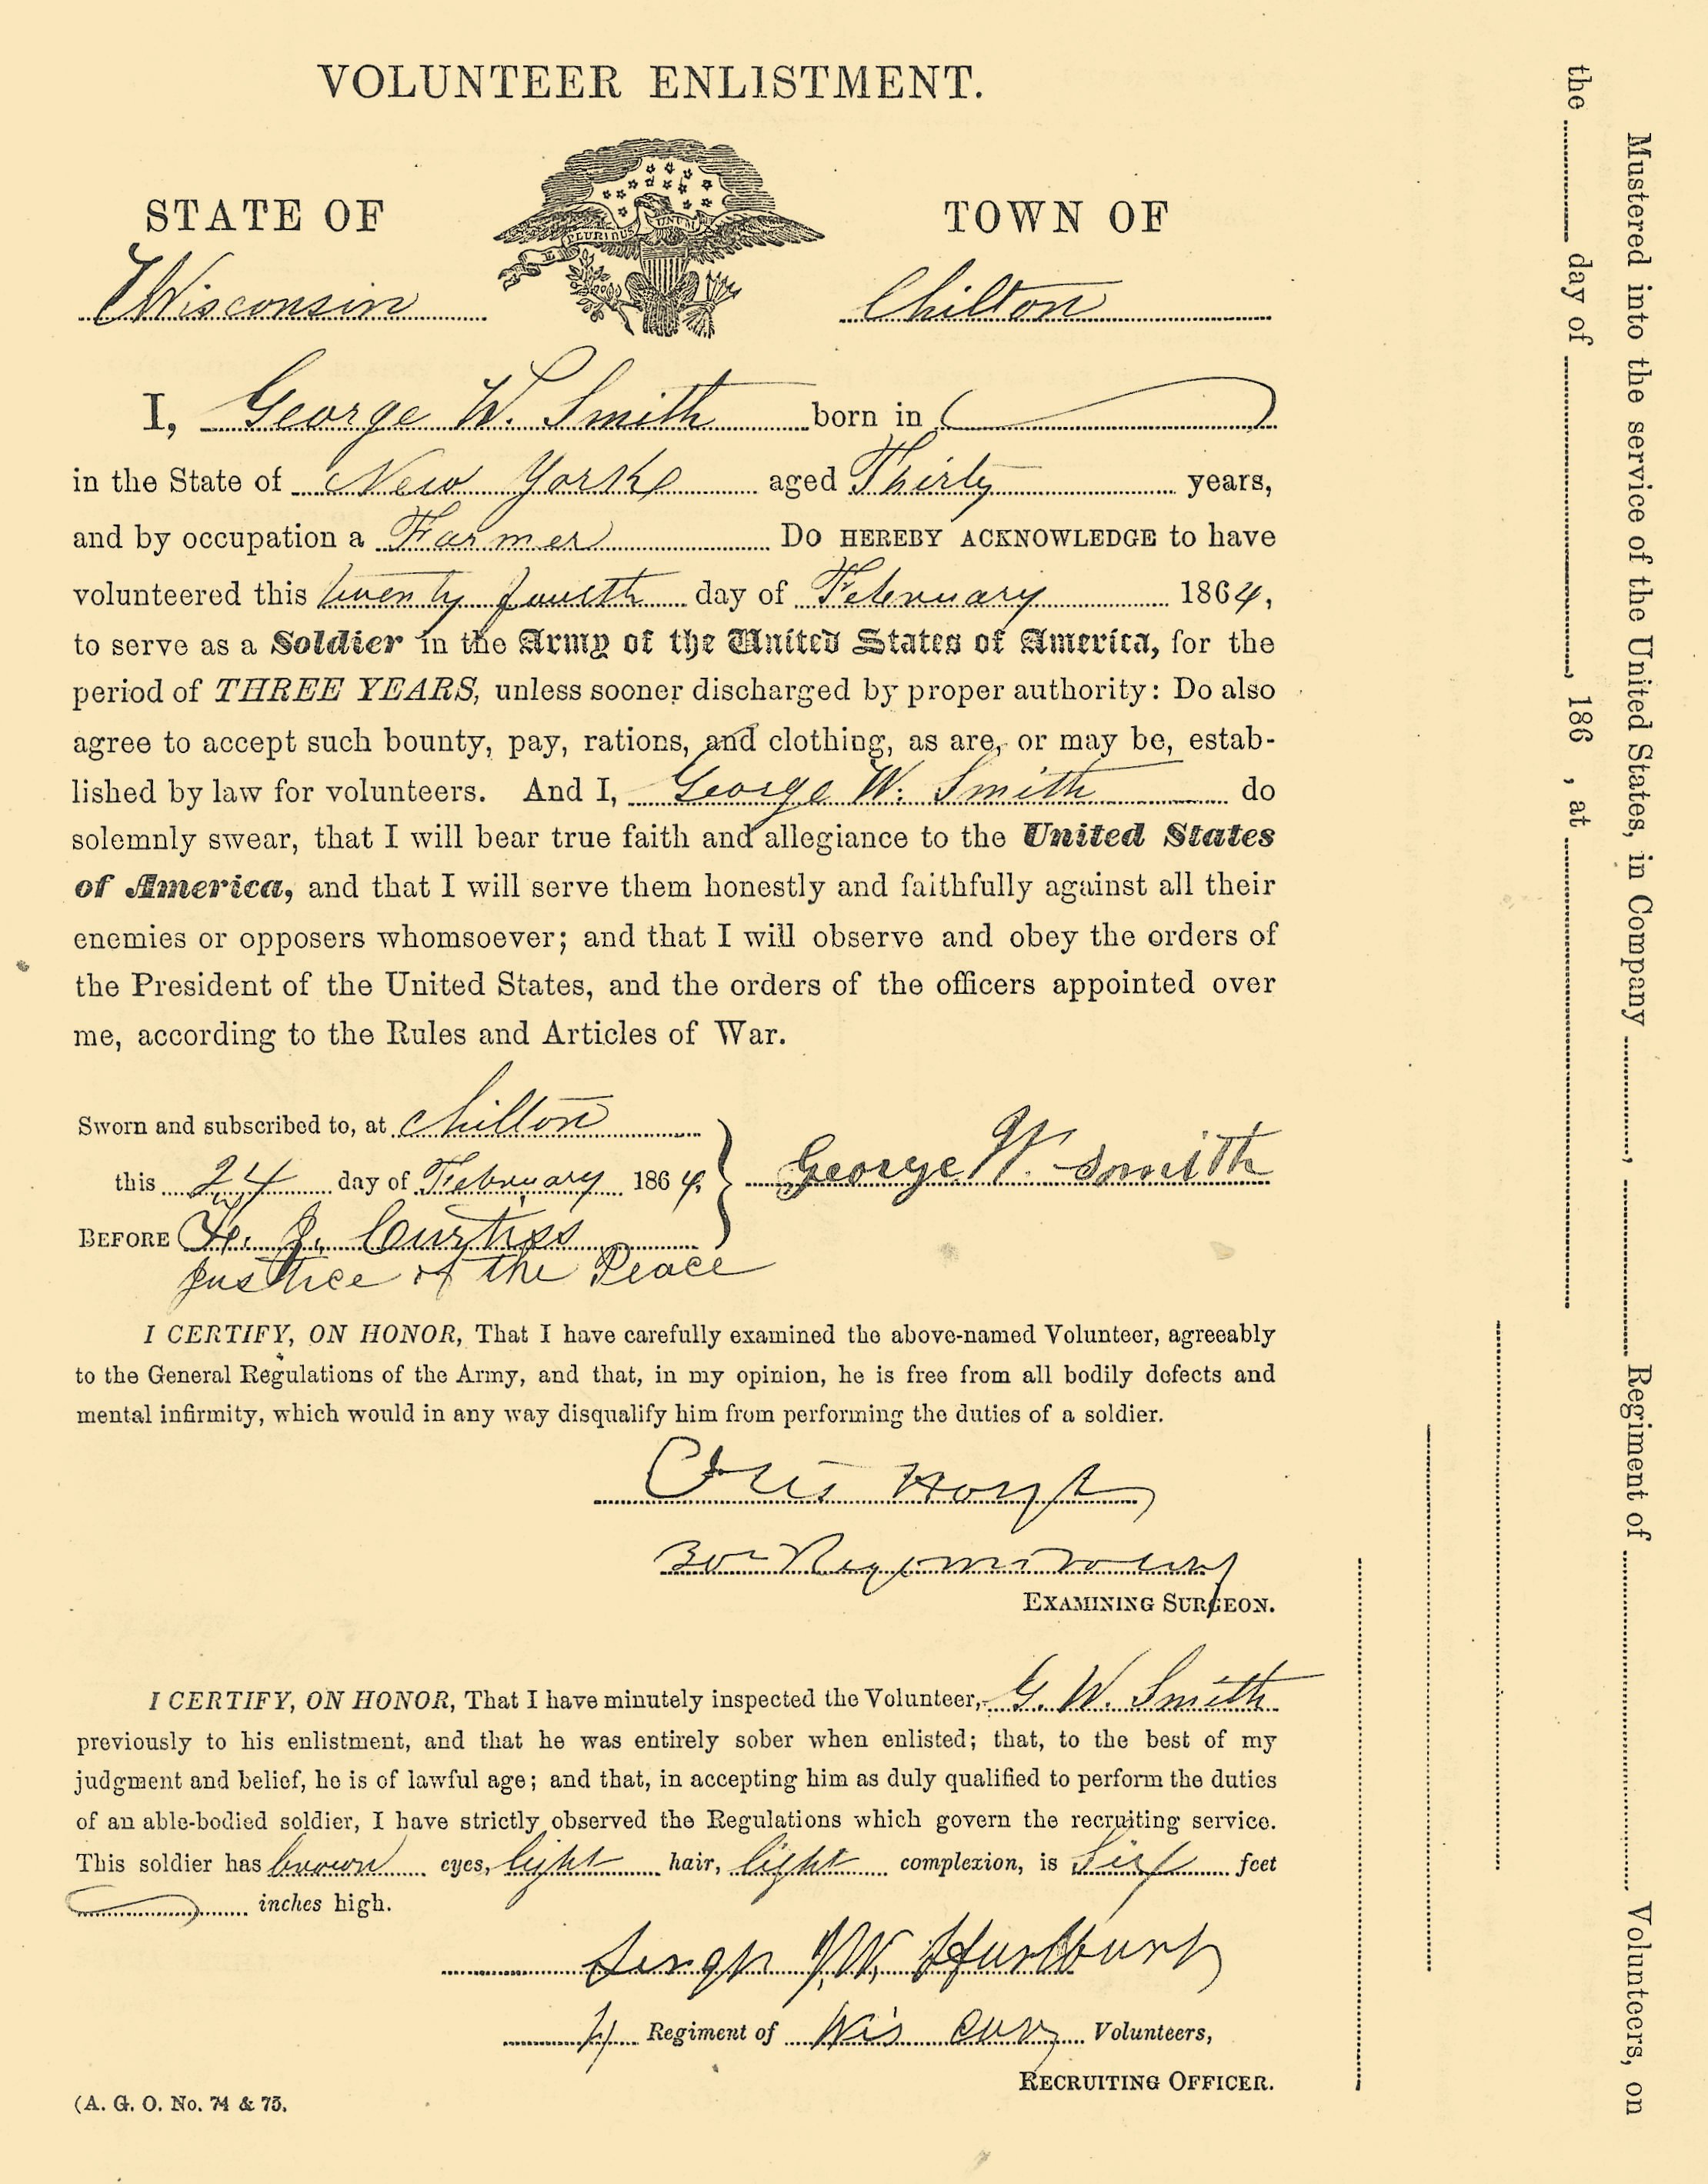 VOLUNTEER ENLISTMENT.
STATE OF
TOWN OF
E PLURIBUS UNUM
Wisconsin
Chilton
I, George W. Smith born in
in the State of New York aged Thirty years,
and by occupation a Farmer Do HEREBY ACKNOWLEDGE to have
volunteered this twenty fourth day of February 1864,
to serve as a Soldier in the Army of the United States of America, for the
period of THREE YEARS, unless sooner discharged by proper authority: Do also
agree to accept such bounty, pay, rations, and clothing, as are, or may be, estab-
lished by law for volunteers. And I, George W. Smith do
solemnly swear, that I will bear true faith and allegiance to the United States
of America, and that I will serve them honestly and faithfully against all their
enemies or opposers whomsoever; and that I will observe and obey the orders of
the President of the United States, and the orders of the officers appointed over
me, according to the Rules and Articles of War.
Sworn and subscribed to, at Chilton
this 24 day of February 1864,
George W. Smith
BEFORE H. J. Curtiss
Justice of the Peace
I CERTIFY, ON HONOR, That I have carefully examined the above-named Volunteer, agreeably
to the General Regulations of the Army, and that, in my opinion, he is free from all bodily defects and
mental infirmity, which would in any way disqualify him from performing the duties of a soldier.
Otis Hoyt
EXAMINING SURGEON.
I CERTIFY, ON HONOR, That I have minutely inspected the Volunteer, G. W. Smith
previously to his enlistment, and that he was entirely sober when enlisted; that, to the best of my
judgment and belief, he is of lawful age; and that, in accepting him as duly qualified to perform the duties
of an able-bodied soldier, I have strictly observed the Regulations which govern the recruiting service.
This soldier has brown eyes, light hair, light complexion, is Six feet
inches high.
W. Hurlburt
4 Regiment of Wis Cavy Volunteers,
RECRUITING OFFICER.
(A. G. O. No. 74 & 75.
Mustered into the service of the United States, in Company , Regiment of Volunteers, on
the day of , 186 , at